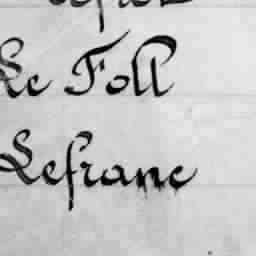 Le Foll
Lefranc